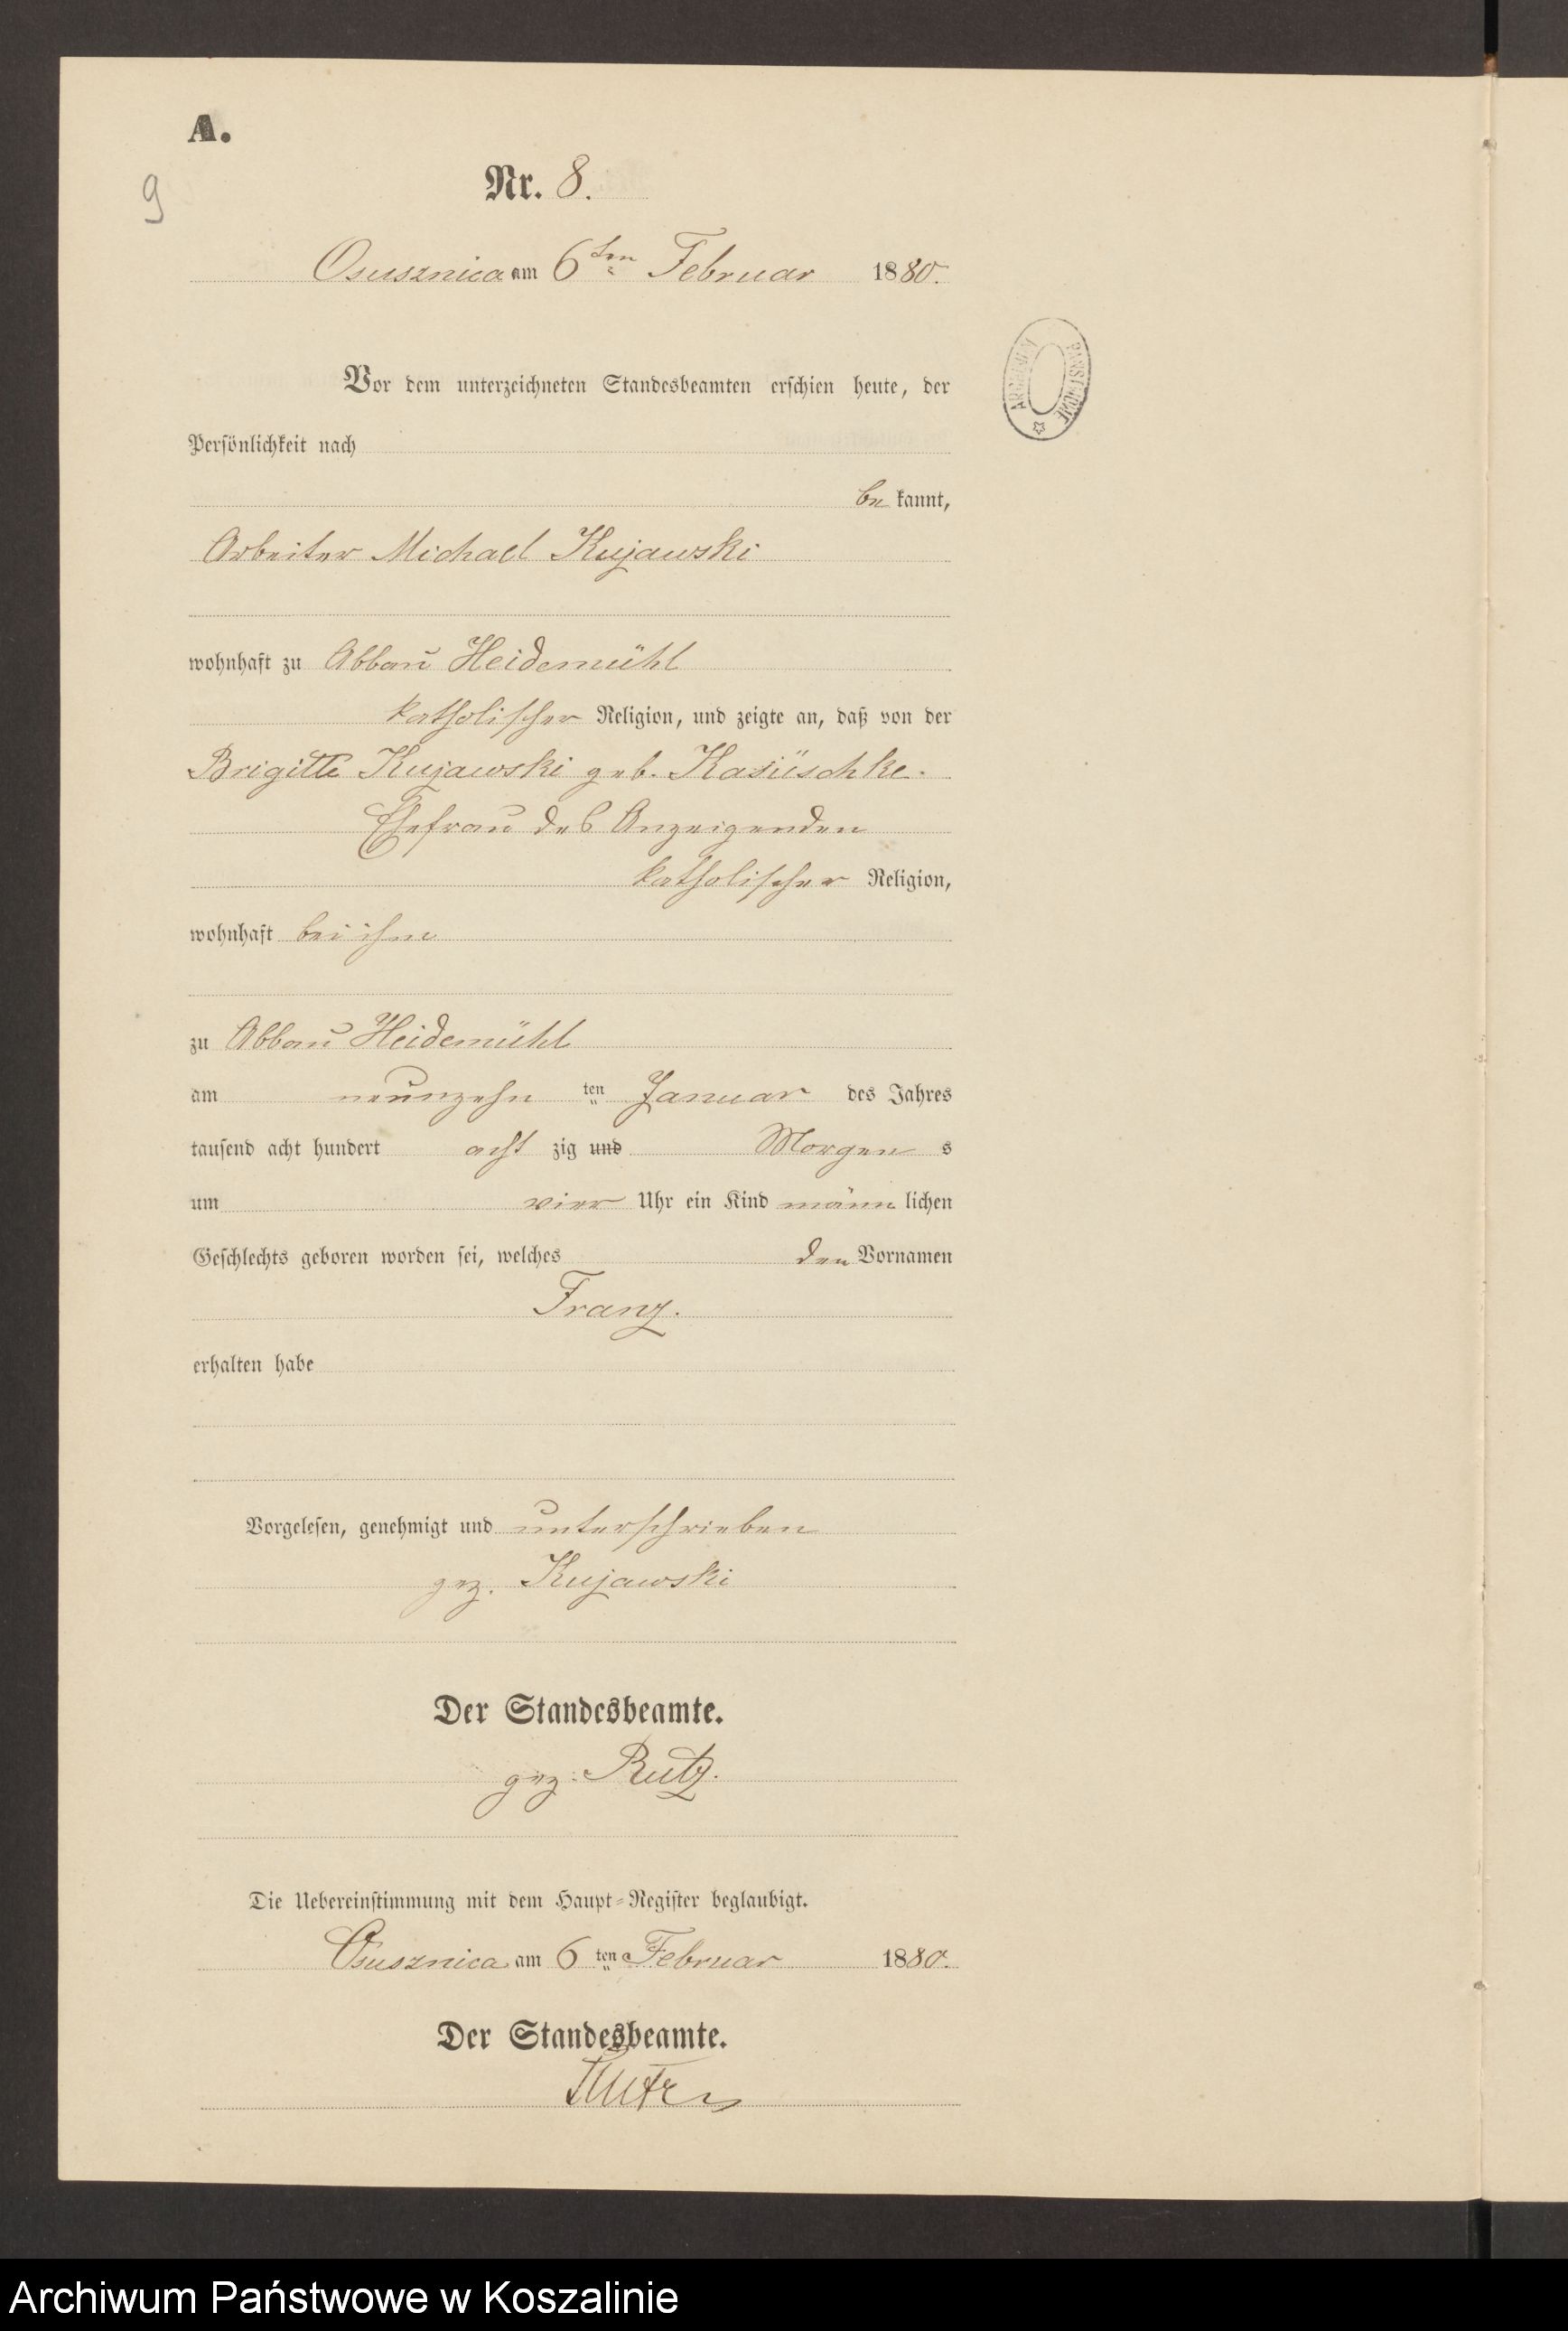 A.
9
Nr. 8.
Osusznica am 6ten Februar 1880.
ARCHIWUM PAŃSTWOWE
Vor dem unterzeichneten Standesbeamten erschien heute, der
Persönlichkeit nach
be kannt,
Arbeiter Michael Kujawski
wohnhaft zu Abbau Heidemühl
katholischer Religion, und zeigte an, daß von der
Brigitte Kujawski geb.
Ehefrau des Anzeigenden
katholischer Religion,
wohnhaft bei ihm
zu Abbau Heidemühl
am neunzehn ten Januar des Jahres
tausend acht hundert acht zig und Morgen s
um vier Uhr ein Kind männ lichen
Geschlechts geboren worden sei, welches den Vornamen
Franz.
erhalten habe
Vorgelesen, genehmigt und unterschrieben
gez. Kujawski
Der Standesbeamte.
gez. Rutz.
Die Uebereinstimmung mit dem Haupt-Register beglaubigt.
Osusznica am 6 ten Februar 1880.
Der Standesbeamte.
Rutz
Archiwum Państwowe w Koszalinie